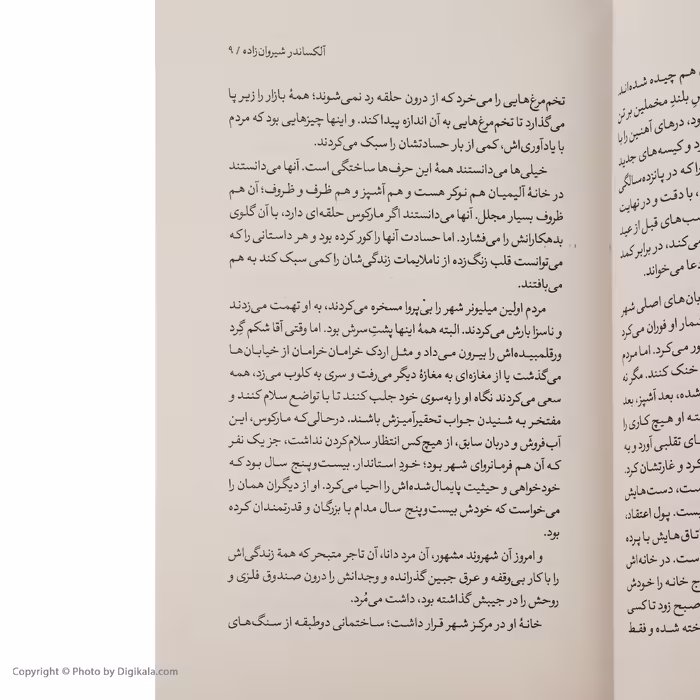 آلکساندر شیروان‌زاده / ۹
تخم‌مرغ‌هایی را می‌خرد که از درون حلقه رد نمی‌شوند؛ همهٔ بازار را زیر پا
می‌گذارد تا تخم‌مرغ‌هایی به آن اندازه پیدا کند. و اینها چیزهایی بود که مردم
با یادآوری‌اش، کمی از بار حسادتشان را سبک می‌کردند.
خیلی‌ها می‌دانستند همهٔ این حرف‌ها ساختگی است. آنها می‌دانستند
در خانهٔ آلیمیان هم نوکر هست و هم آشپز و هم ظرف و ظروف؛ آن هم
ظروف بسیار مجلل. آنها می‌دانستند اگر مارکوس حلقه‌ای دارد، با آن گلوی
بدهکارانش را می‌فشارد. اما حسادت آنها را کور کرده بود و هر داستانی را که
می‌توانست قلب زنگ‌زده از ناملایمات زندگی‌شان را کمی سبک کند به هم
می‌بافتند.
مردم اولین میلیونر شهر را بی‌پروا مسخره می‌کردند، به او تهمت می‌زدند
و ناسزا بارش می‌کردند. البته همهٔ اینها پشتِ‌سرش بود. اما وقتی آقا شکم گِرد
ورقلمبیده‌اش را بیرون می‌داد و مثل اردک خرامان‌خرامان از خیابان‌ها
می‌گذشت یا از مغازه‌ای به مغازهٔ دیگر می‌رفت و سری به کلوب می‌زد، همه
سعی می‌کردند نگاه او را به‌سوی خود جلب کنند تا با تواضع سلام کنند و
مفتخر به شنیدن جواب تحقیرآمیزش باشند. درحالی‌که مارکوس، این
آب‌فروش و دربان سابق، از هیچ‌کس انتظار سلام‌کردن نداشت، جز یک نفر
که آن هم فرمانروای شهر بود؛ خودِ استاندار. بیست‌وپنج سال بود که
خودخواهی و حیثیت پایمال‌شده‌اش را احیا می‌کرد. او از دیگران همان را
می‌خواست که خودش بیست‌وپنج سال مدام با بزرگان و قدرتمندان کرده
بود.
و امروز آن شهروند مشهور، آن مرد دانا، آن تاجر متبحر که همهٔ زندگی‌اش
را با کار بی‌وقفه و عرق جبین گذرانده و وجدانش را درون صندوق فلزی و
روحش را در جیبش گذاشته بود، داشت می‌مُرد.
خانهٔ او در مرکز شهر قرار داشت؛ ساختمانی دوطبقه از سنگ‌های
هم چیده شده‌اند.
بلندِ مخملین بر تن
درهای آهنین را با
و کیسه‌های جدید
را که در پانزده‌سالگی
با دقت و در نهایت
قبل از عید
در برابر کمد
می‌خواند.
اصلی شهر
او فوران می‌کرد
می‌کرد. اما مردم
خنک کنند. مگر نه
بعد آشپز، بعد
او هیچ کاری را
تقلبی آورد و به
و غارتشان کرد.
دست‌هایش
پول اعتقاد،
با پرده
در خانه‌اش
خانه را خودش
صبح زود تا کسی
شده و فقط
Copyright © Photo by Digikala.com